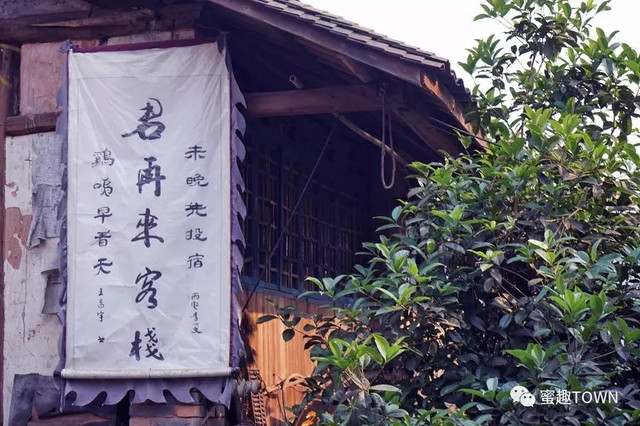 未晚先投宿
君再来客栈
鷄鳴早看天
蜜趣TOWN